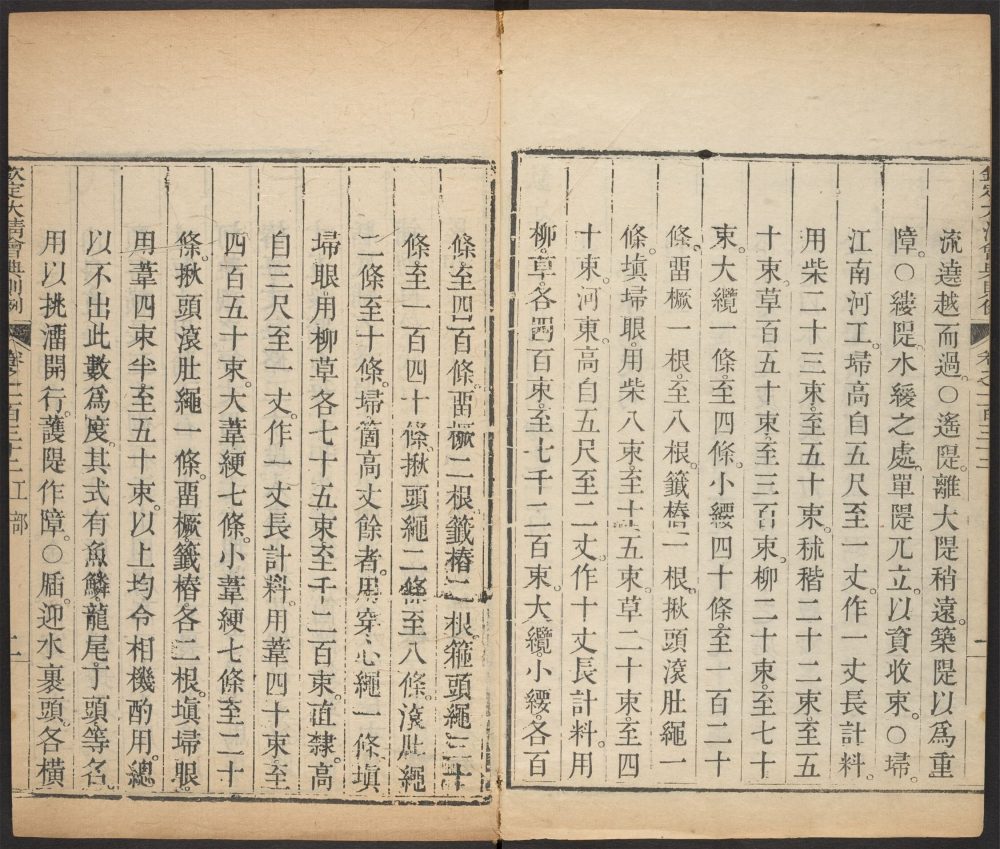 流遶越而過。○遙隄離大隄稍遠。築隄以爲重
障。○縷隄水緩之處。單隄兀立。以資收束。○埽。
江南河工。埽高自五尺至一丈。作一丈長計料。
用柴二十三束。至五十束。秫稭二十二束至五
十束。草百五十束至三百束。柳二十束。至七十
束。大纜一條至四條。小纓四十條至一百二十
條。畱橛一根至八根。籤樁一根。揪頭滾肚繩一
條。塡埽眼。用柴八束至十五束。草二十束至四
十束。河東。高自五尺至二丈。作十丈長計料。用
柳。草。各四百束至七千二百束。大纜。小纓。各百
條至四百條。畱橛二根。籤樁二根。箍頭繩三十
條至一百四十條。揪頭繩二條至八條。滾肚繩
二條至十條。埽箇高丈餘者。用穿心繩一條。塡
埽眼用柳草各七十五束至千二百束。直隸。高
自三尺至一丈。作一丈長計料。用葦四十束至
四百五十束。大葦綆七條。小葦綆七條至二十
條。揪頭滾肚繩一條。畱橛籤樁各二根。塡埽眼
用葦四束半至五十束。以上均令相機酌用。總
以不出此數爲度。其式有魚鱗龍尾丁頭等名
用以挑溜開行。護隄作障。○牐迎水裹頭。各橫
欽定大清會典則例 卷之一百三十二 工部 二